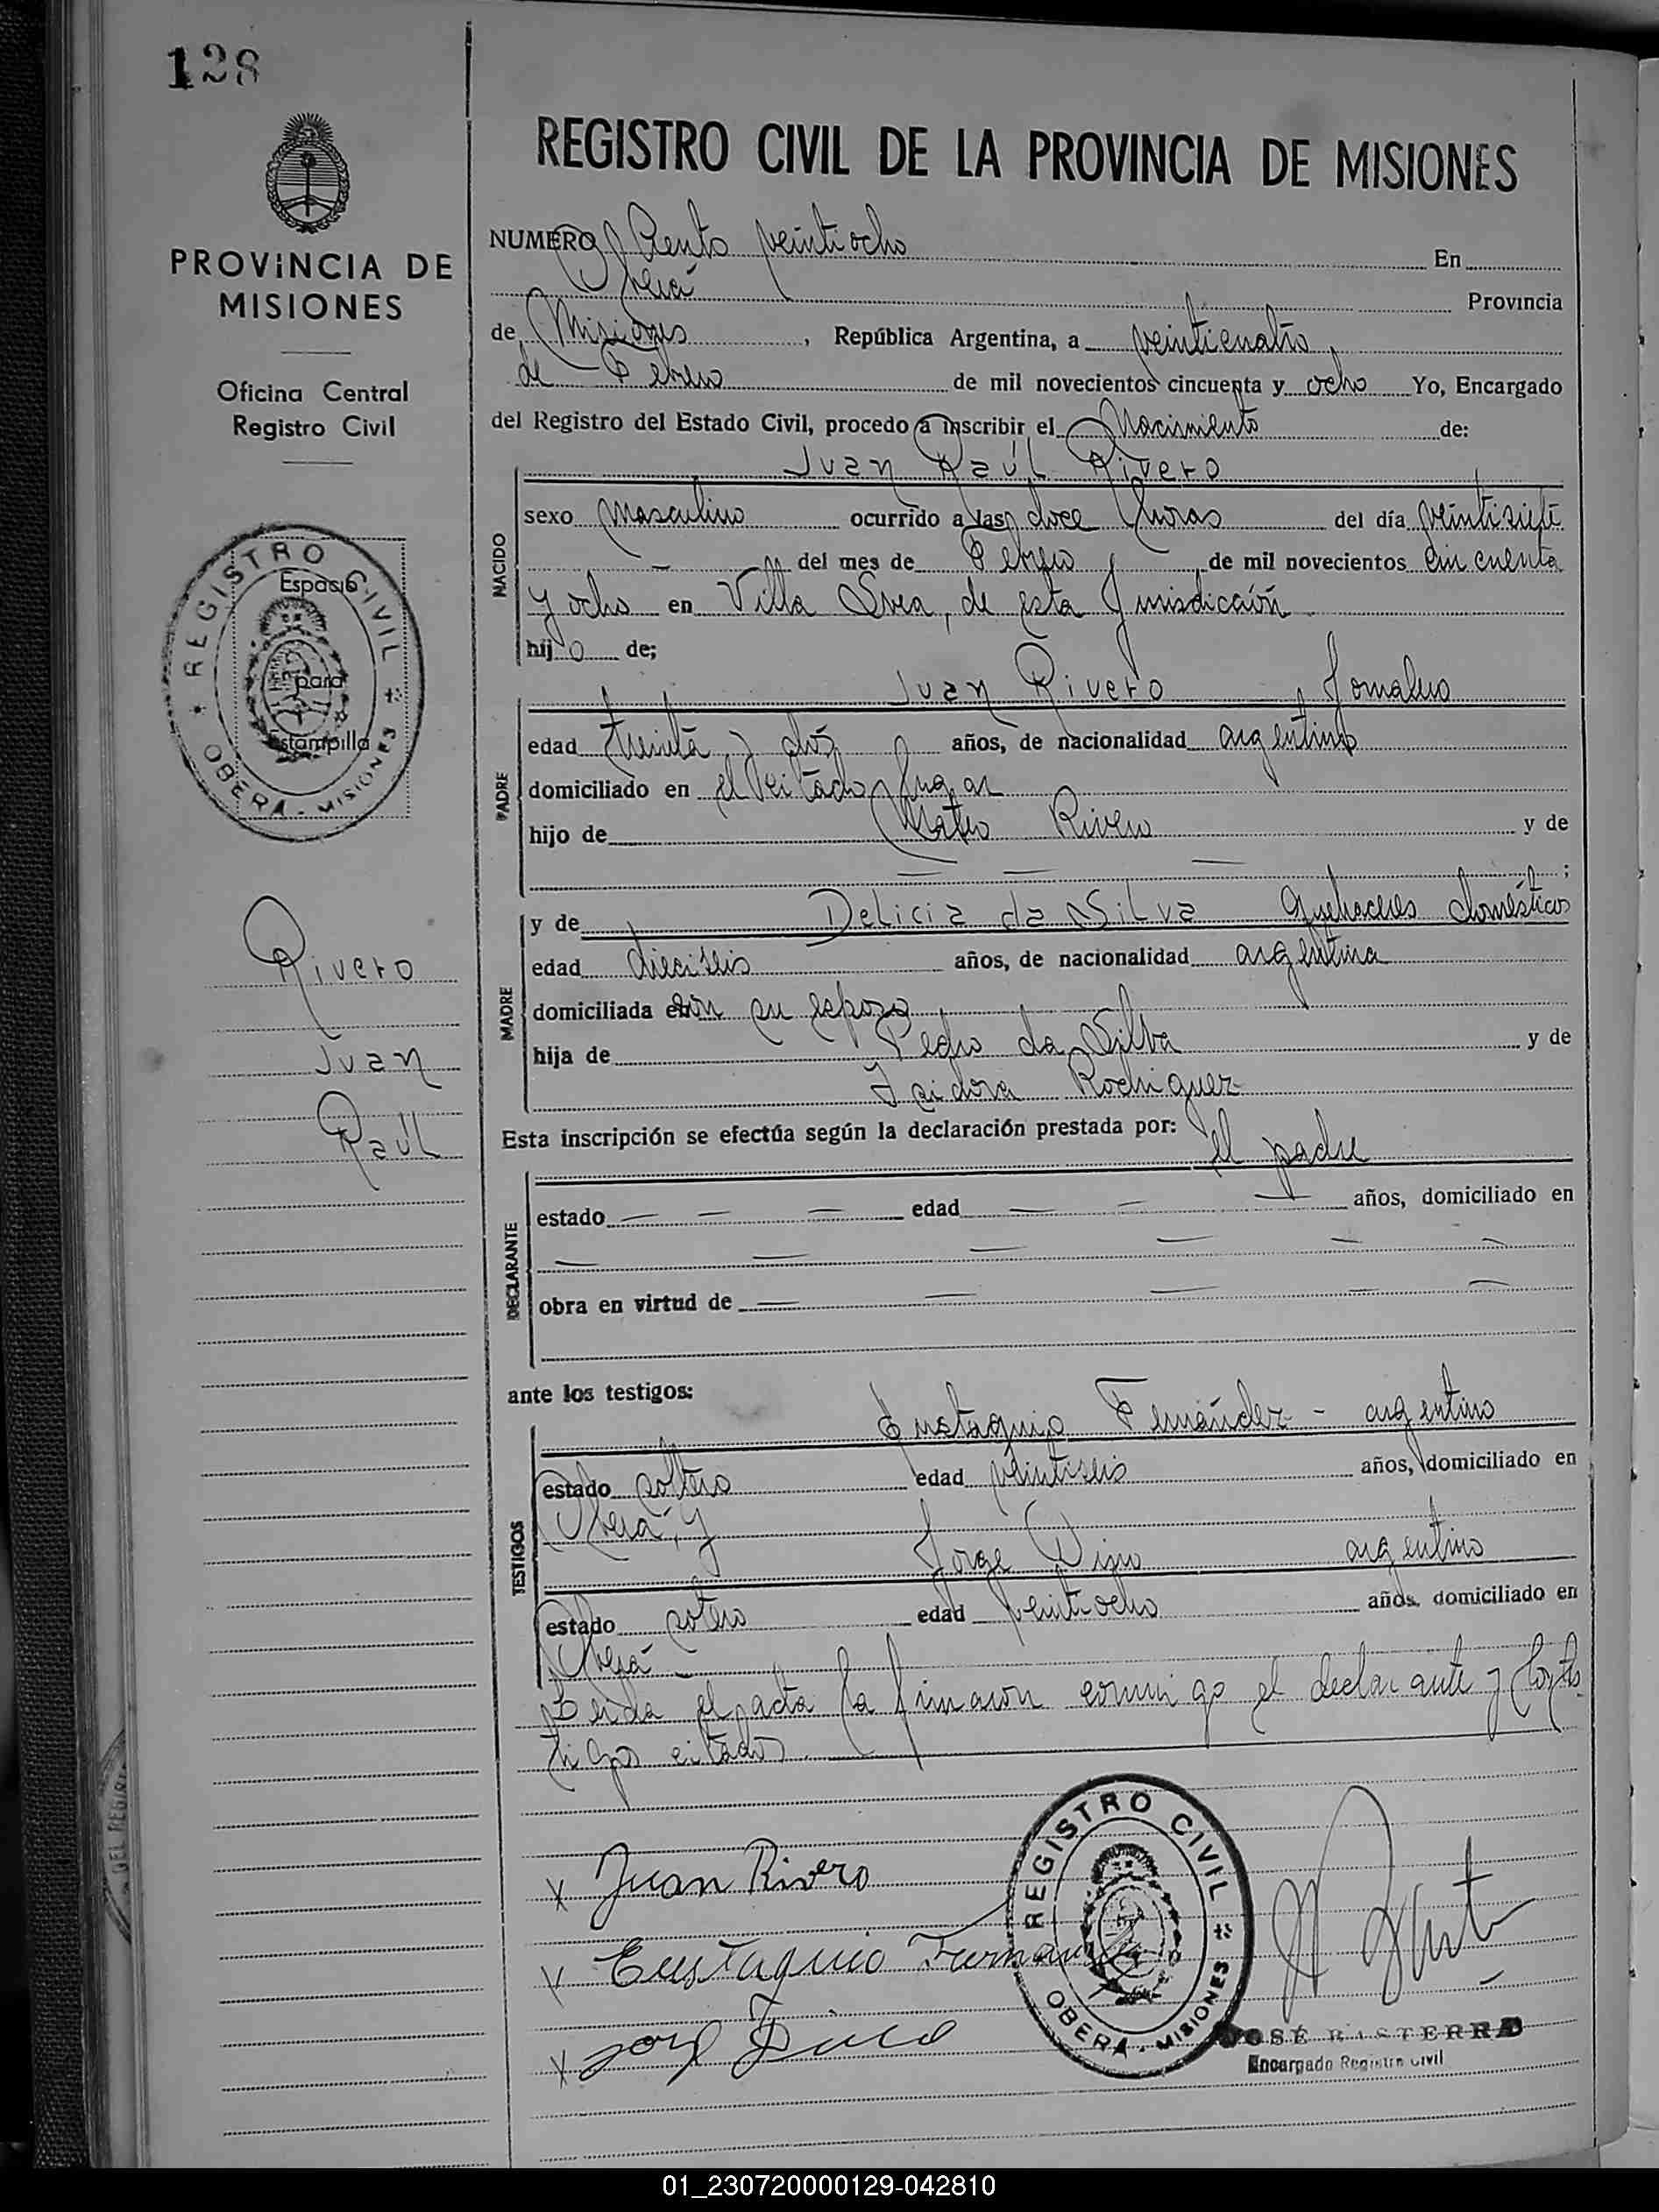 128
PROVINCIA DE
MISIONES
Oficina Central
Registro Civil
REGISTRO CIVIL
Espacio
para
Estampilla
OBERA - MISIONES
Rivero
Juan
Raúl
REGISTRO CIVIL DE LA PROVINCIA DE MISIONES
NUMERO Ciento veintiocho En
Oberá Provincia
de Misiones, República Argentina, a veinticuatro
de Febrero de mil novecientos cincuenta y ocho Yo, Encargado
del Registro del Estado Civil, procedo a inscribir el Nacimiento de:
Juan Raúl Rivero
NACIDO
sexo masculino ocurrido a las doce horas del día veintisiete
del mes de de mil novecientos cincuenta
y ocho en Villa Svea, de esta Jurisdicción
hijo de;
Juan Rivero, Jornalero
PADRE
edad treinta y dos años, de nacionalidad argentino
domiciliado en el citado lugar
hijo de Mateo Rivero y de
— — — ;
y de Delicia da Silva quehaceres domésticos
MADRE
edad dieciseis años, de nacionalidad argentina
domiciliada con su esposo
hija de Pedro da Silva y de
Isidora Rodriguez
Esta inscripción se efectúa según la declaración prestada por:
el padre
DECLARANTE
estado — — — edad — — — años, domiciliado en
— — — — — —
obra en virtud de — — — — —
ante los testigos:
Eustaquio Fernández - argentino
TESTIGOS
estado soltero edad veintiseis años, domiciliado en
Oberá, y
Jorge argentino
estado soltero edad veintiocho años, domiciliado en
Oberá -
Leida el acta la firmaron conmigo el declarante y los tes-
tigos citados
x Juan Rivero
x Eustaquio Fernandez
x Jorge
REGISTRO CIVIL
OBERA - MISIONES
JOSÉ BASTERRA
Encargado Registro Civil
01_230720000129-042810